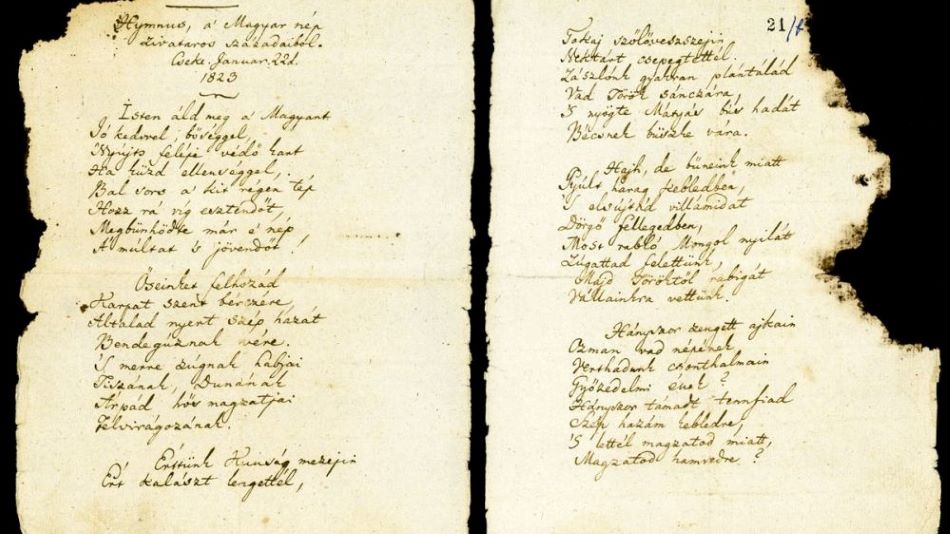 Hymnus, a' Magyar nép
zivataros századaiból.
Cseke. Januar. 22d.
1823
Isten áld meg a' Magyart
Jó kedvvel, bőséggel,
Nyújts feléje védő kart
Ha küzd ellenséggel,
Bal sors a' kit régen tép
Hozz rá víg esztendőt,
Megbűnhödte már e' nép,
A' múltat 's jövendőt!
Őseinket felhozád
Kárpát szent bérczére,
Általad nyert szép hazát
Bendegúznak vére.
'S merre zúgnak habjai
Tiszának, Dunának
Árpád hős magzatjai
Felvirágozának.
Értünk Kunság mezején
Ért kalászt lengettél,
21/b
Tokaj szőlőveszszejin
Nektárt csepegtettél.
Zászlónk gyakran plántálád
Vad Török sánczára,
'S nyögte Mátyás bús hadát
Bécsnek büszke vára.
Hajh, de bűneink miatt
Gyúlt harag kebledben,
'S elsújtád villámidat
Dörgő fellegedben,
Most rabló Mongol nyilát
Zúgattad felettünk,
Majd Töröktől rabigát
Vállainkra vettünk.
Hányszor zengett ajkain
Ozman vad népének
Vert hadunk csonthalmain
Győzedelmi ének?
Hányszor támadt tenn fiad
Szép hazám kebledre,
'S lettél magzatod miatt,
Magzatod hamvvedre?